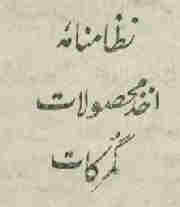 نظامنامه
اخذ محصولات
گمرکات